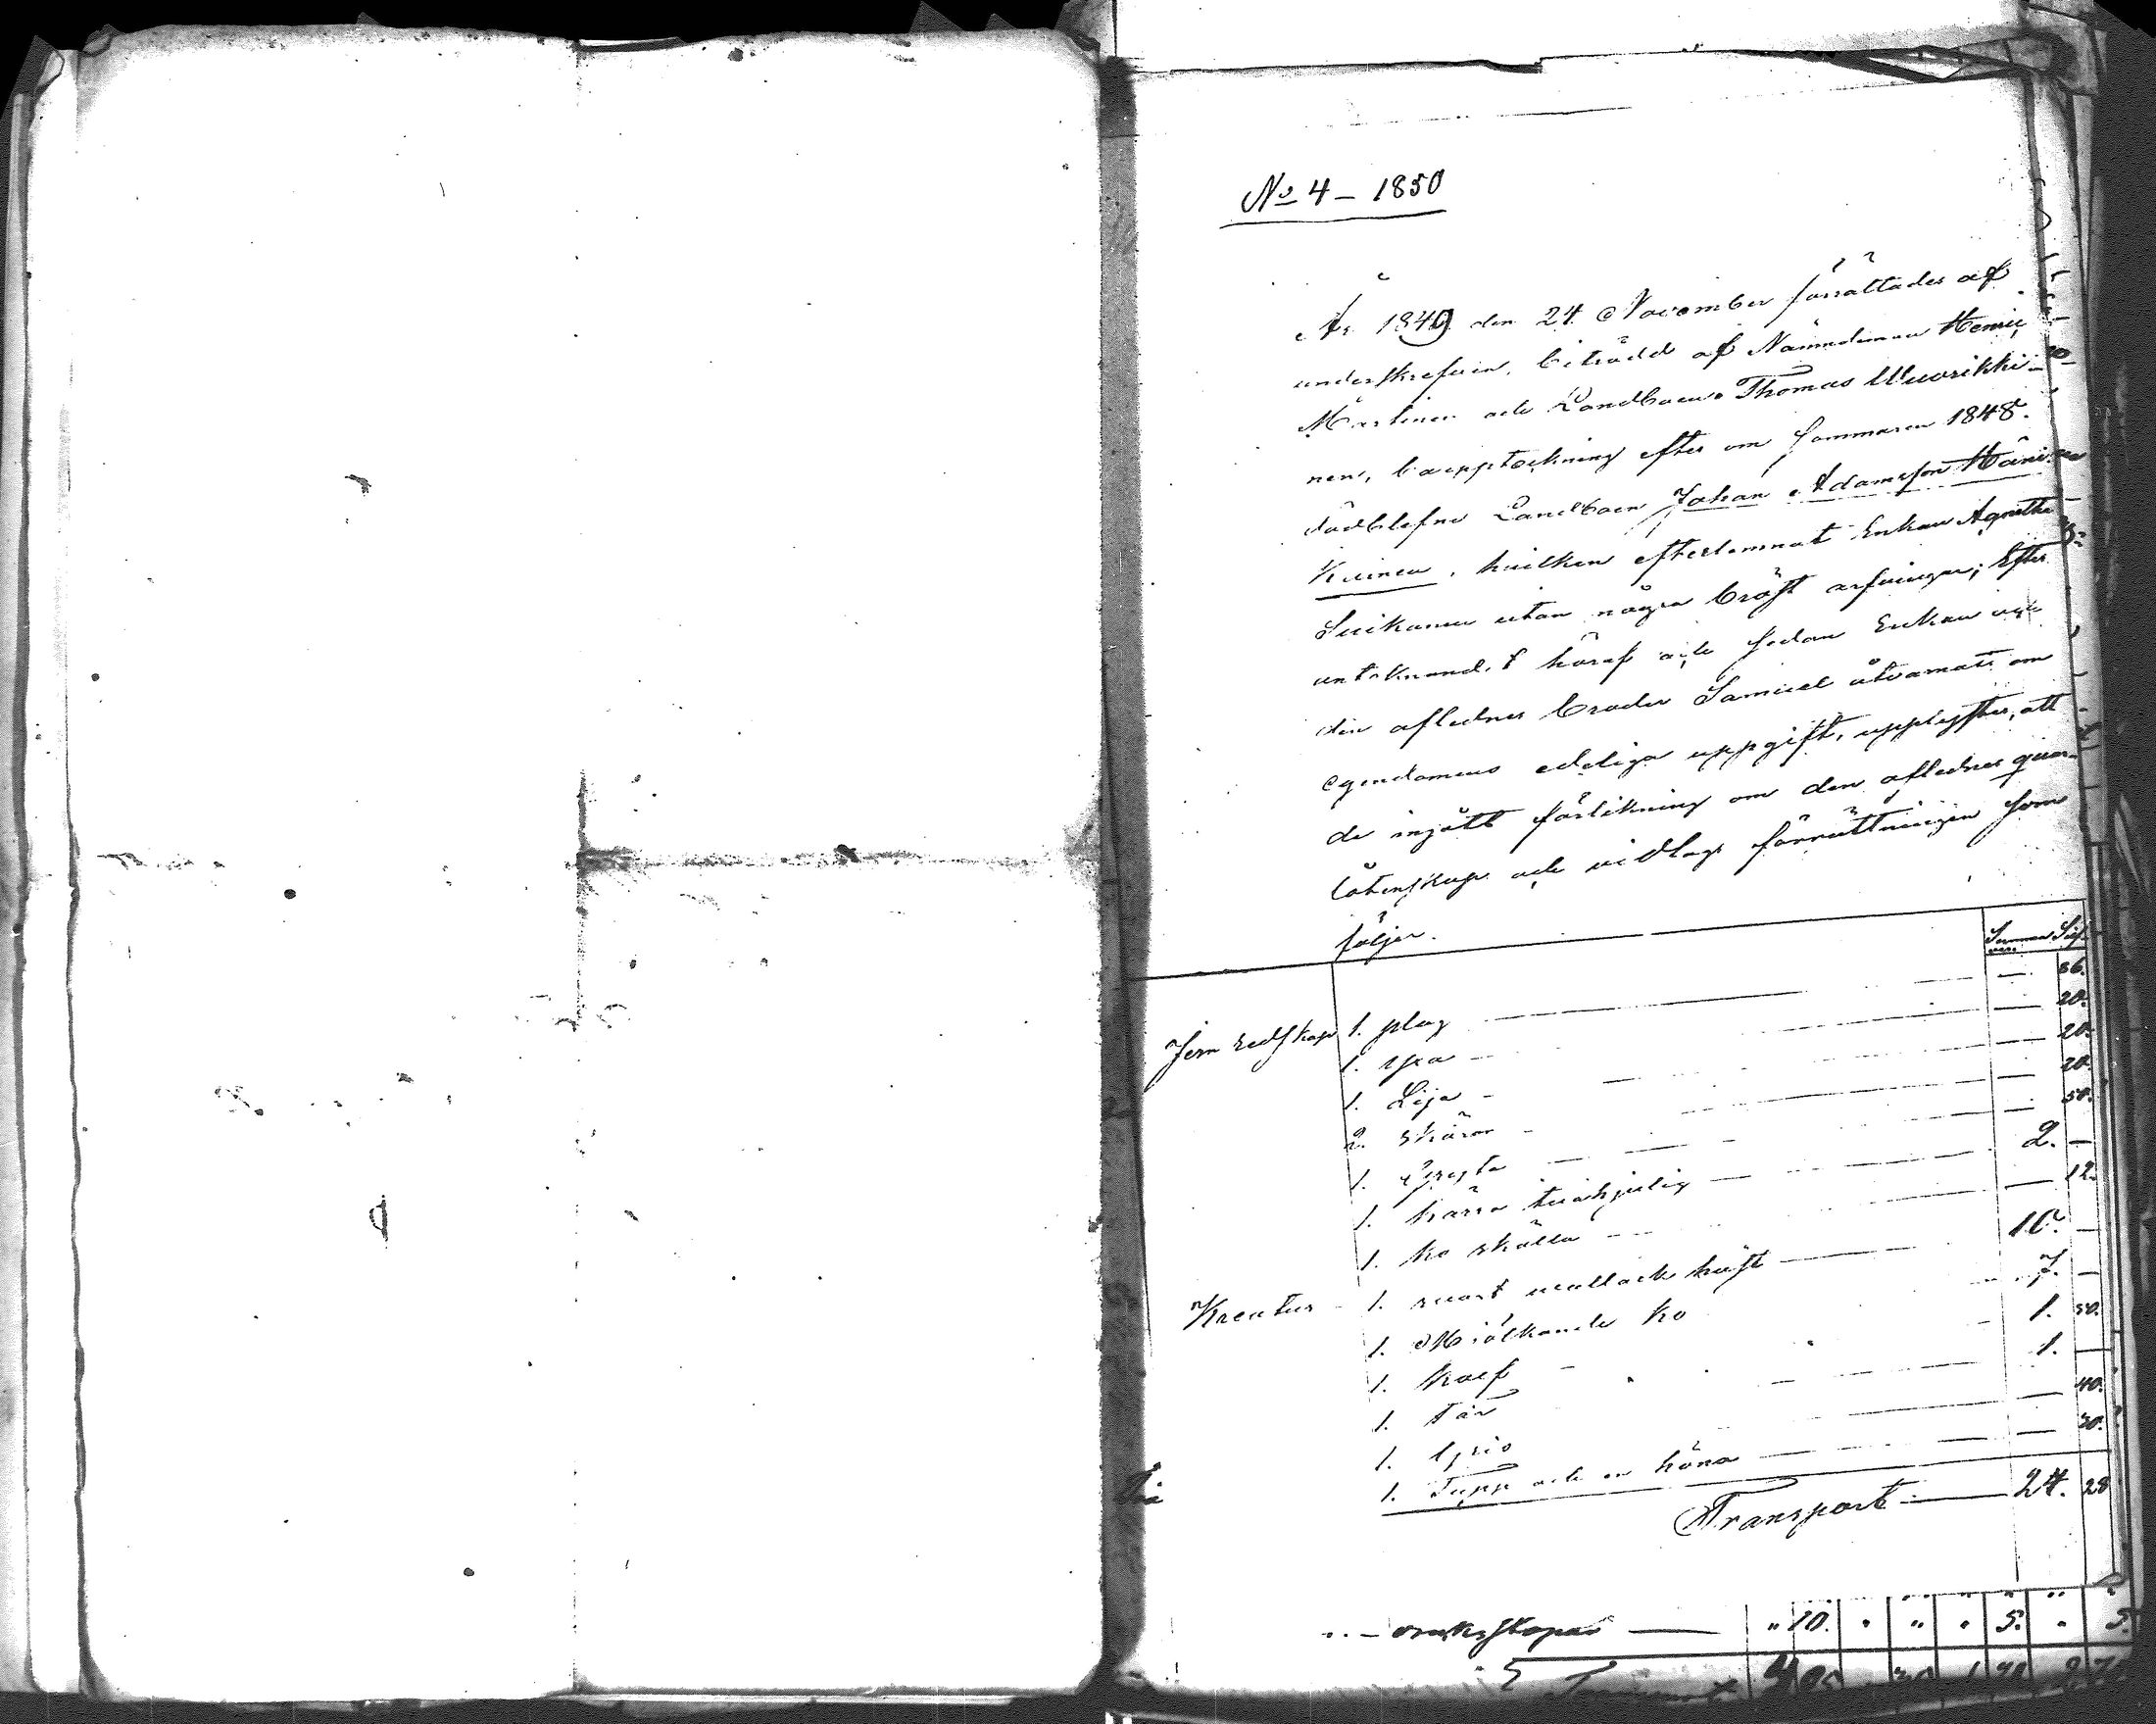 No 4 - 1850
År 1849 den 24 November förrättades af
underskrefven, biträdd af Nämndeman Henric
Martinen och Landboen Thomas Wuorikki-
nen, bouppteckning efter om sommaren 1848.
dödblefne Landboen Johan Adamsson Häni-
Kuinen, hvilken efterlemnat Enkan Agnetha
utan några bröst arfvingar; Efter
häraf och sedan Enkan
den aflednes broder Samuel åtvarnatt om
egendomens edeliga uppgift, upplystes, att
de ingått förlikning om den aflednes qvar-
låtenskap och vidtogs förrättningen som
följer.
Summa Silf
Jern redskap 1. plog — 86.
1. — 20.
1. Lija — 20.
2. skäror — 20.
1. — 50.
1. kärra tvåhjulig — 2. —
1. ko skälla — 12.
Kreatur - 1. svart wallack häst — 10. —
1. Miölkande Ko 7. —
1. Kalf - 1. 50.
1. Får - 1. —
1. — 40.
1. Tupp och en höna — 30.
Transport — 24. 28
" 10. " " " 5. " 5.